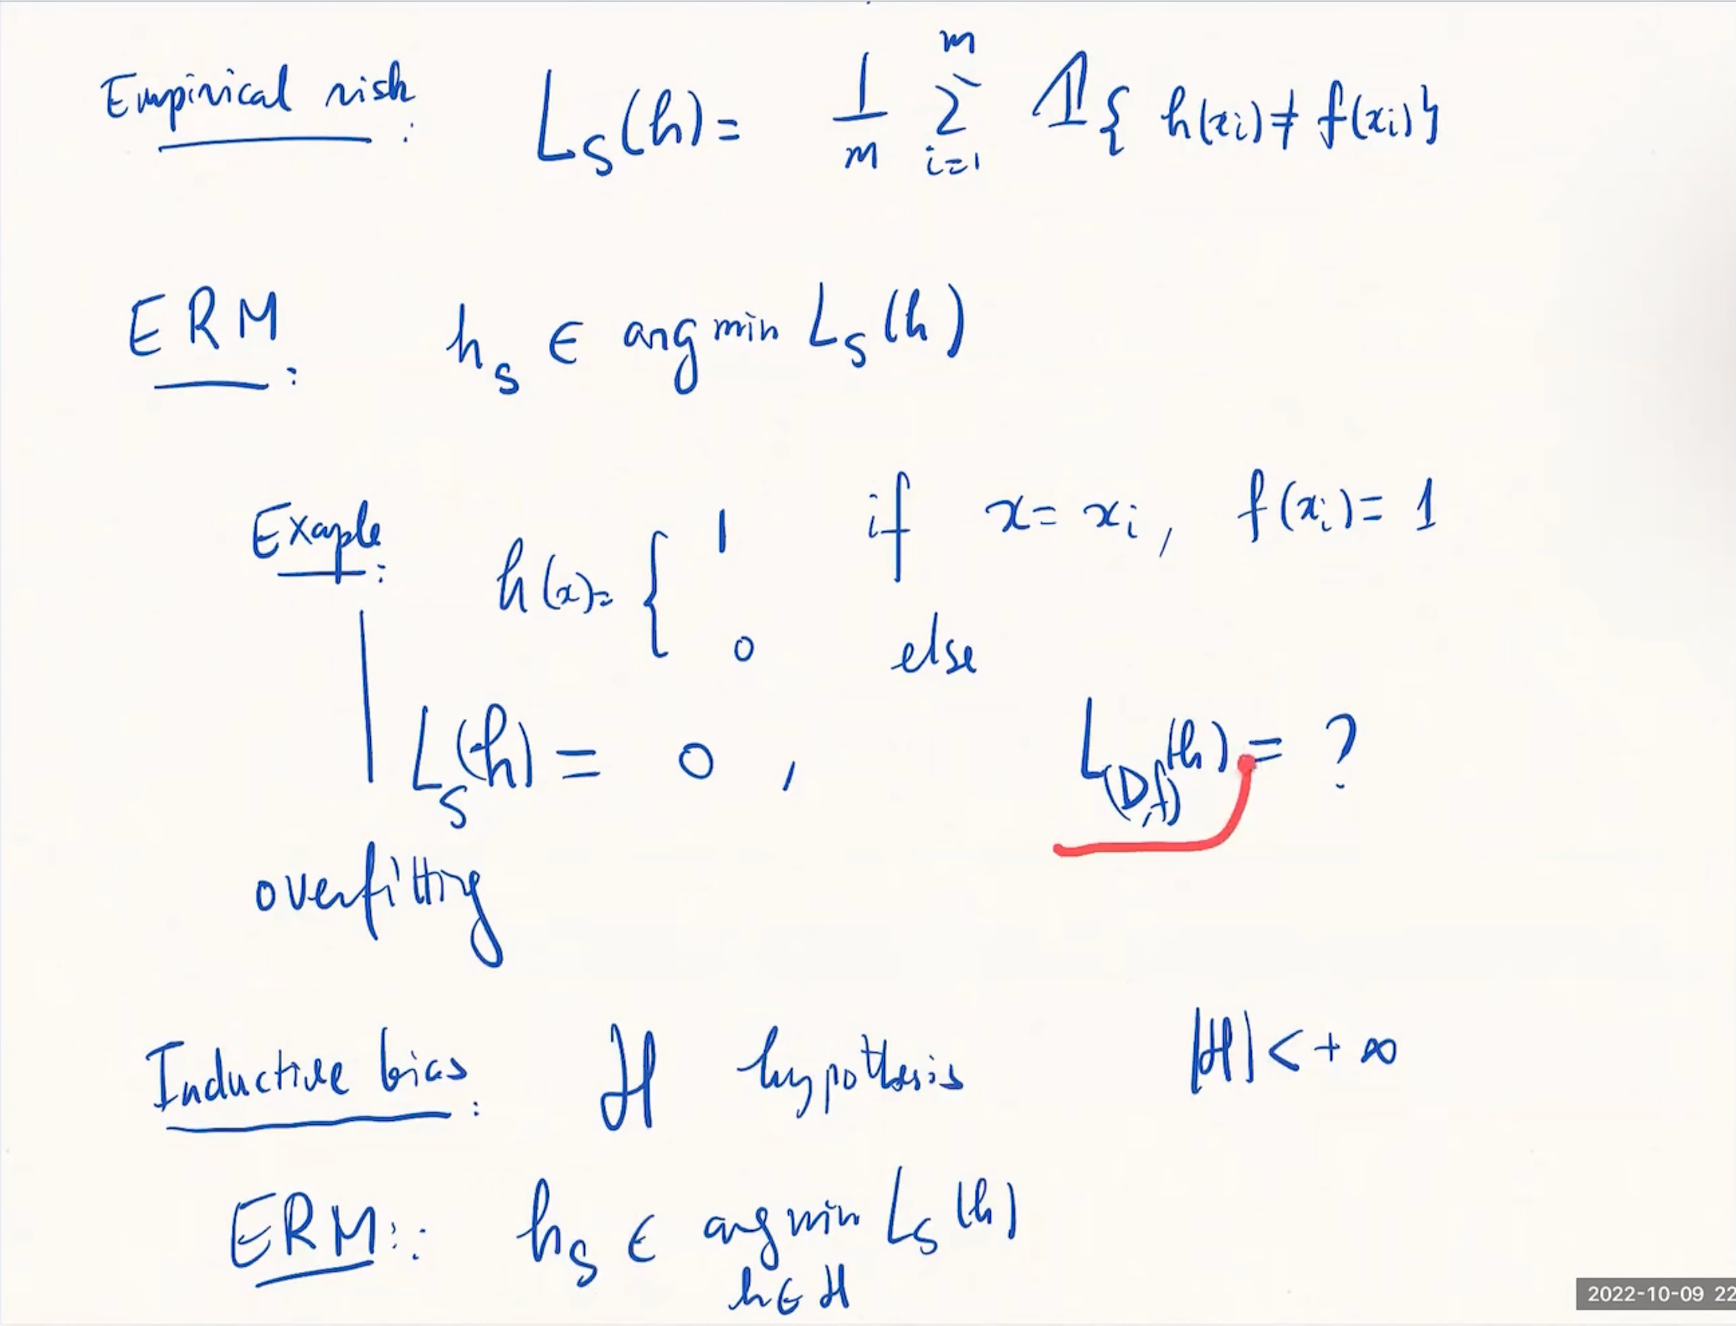 Empirical risk: L_S(h) = 1/m Σ_{i=1}^{m} 𝟙{ h(x_i) ≠ f(x_i) }
ERM: h_S ∈ arg min L_S(h)
Exaple: h(x) = { 1 if x = x_i, f(x_i) = 1
0 else
L_S(h) = 0, L_(D,f)(h) = ?
overfitting
Inductive bias: H hypothesis |H| < +∞
ERM: h_S ∈ arg min L_S(h)
h ∈ H
2022-10-09 22